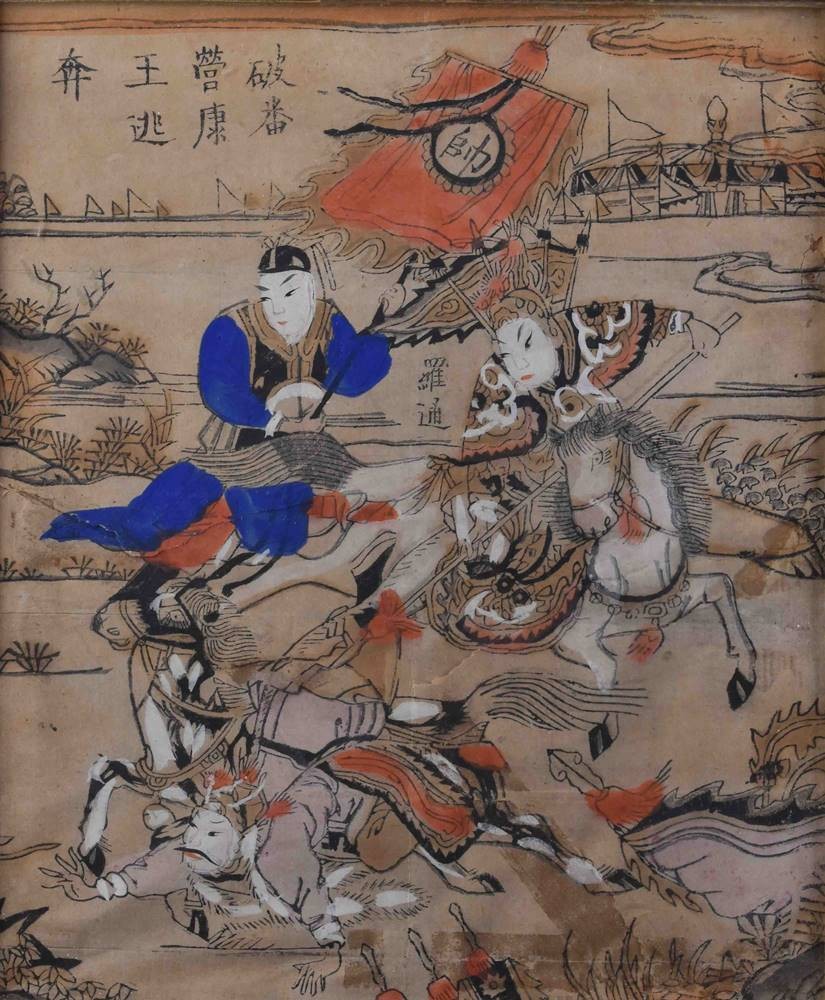 破番
營康
王逃
奔
帥
羅通